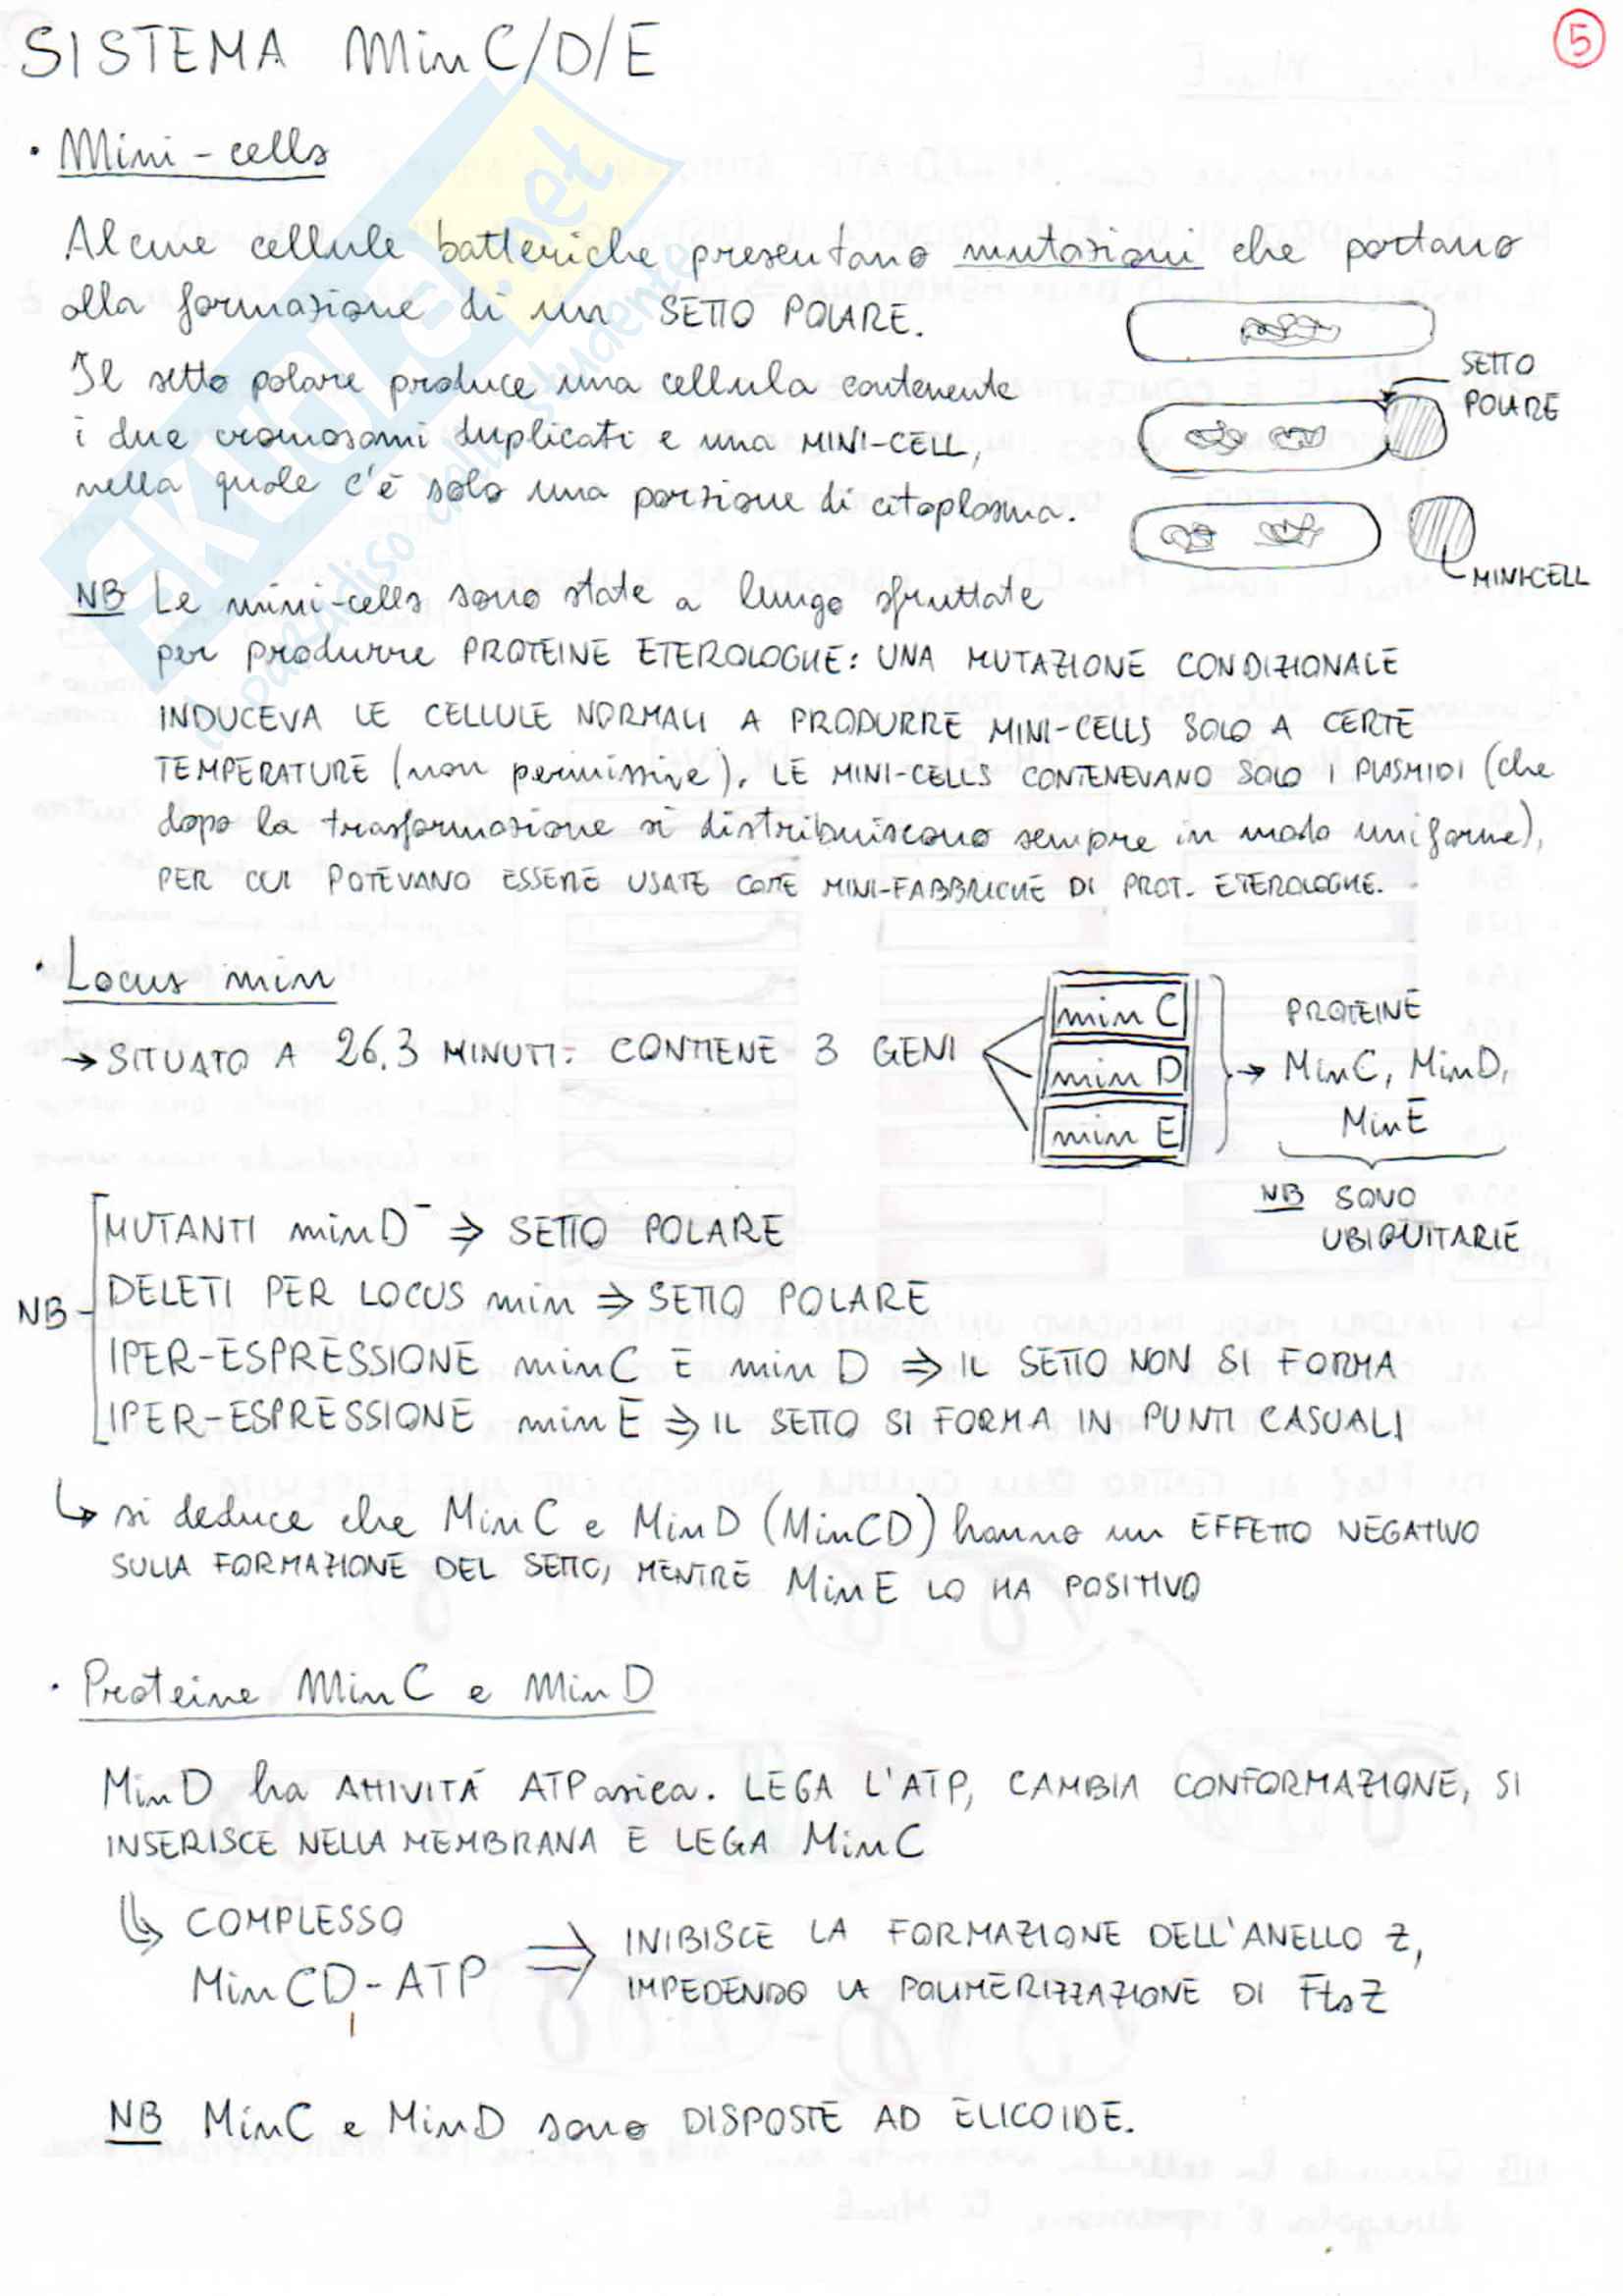 SISTEMA MinC/D/E
5
· Mini-cells
Alcune cellule batteriche presentano mutazioni che portano
alla formazione di un SETTO POLARE.
Il setto polare produce una cellula contenente
i due cromosomi duplicati e una MINI-CELL,
nella quale c'è solo una porzione di citoplasma.
SETTO
POLARE
MINICELL
NB Le mini-cells sono state a lungo sfruttate
per produrre PROTEINE ETEROLOGHE: UNA MUTAZIONE CONDIZIONALE
INDUCEVA LE CELLULE NORMALI A PRODURRE MINI-CELLS SOLO A CERTE
TEMPERATURE (non permissive). LE MINI-CELLS CONTENEVANO SOLO I PLASMIDI (che
dopo la trasformazione si distribuiscono sempre in modo uniforme),
PER CUI POTEVANO ESSERE USATE COME MINI-FABBRICHE DI PROT. ETEROLOGHE.
· Locus min
→ SITUATO A 26.3 MINUTI. CONTIENE 3 GENI
min C
min D
min E
→ PROTEINE
MinC, MinD,
MinE
NB SONO
UBIQUITARIE
NB
MUTANTI minD⁻ ⇒ SETTO POLARE
DELETI PER LOCUS min ⇒ SETTO POLARE
IPER-ESPRESSIONE minC E minD ⇒ IL SETTO NON SI FORMA
IPER-ESPRESSIONE minE ⇒ IL SETTO SI FORMA IN PUNTI CASUALI
↳ si deduce che MinC e MinD (MinCD) hanno un EFFETTO NEGATIVO
SULLA FORMAZIONE DEL SETTO, MENTRE MinE LO HA POSITIVO
· Proteine MinC e MinD
MinD ha ATTIVITÁ ATPasica. LEGA L'ATP, CAMBIA CONFORMAZIONE, SI
INSERISCE NELLA MEMBRANA E LEGA MinC
↳ COMPLESSO
MinCD-ATP ⇒ INIBISCE LA FORMAZIONE DELL'ANELLO Z,
IMPEDENDO LA POLIMERIZZAZIONE DI FtsZ
NB MinC e MinD sono DISPOSTE AD ELICOIDE.
SKUOLA.net
il paradiso dello studente